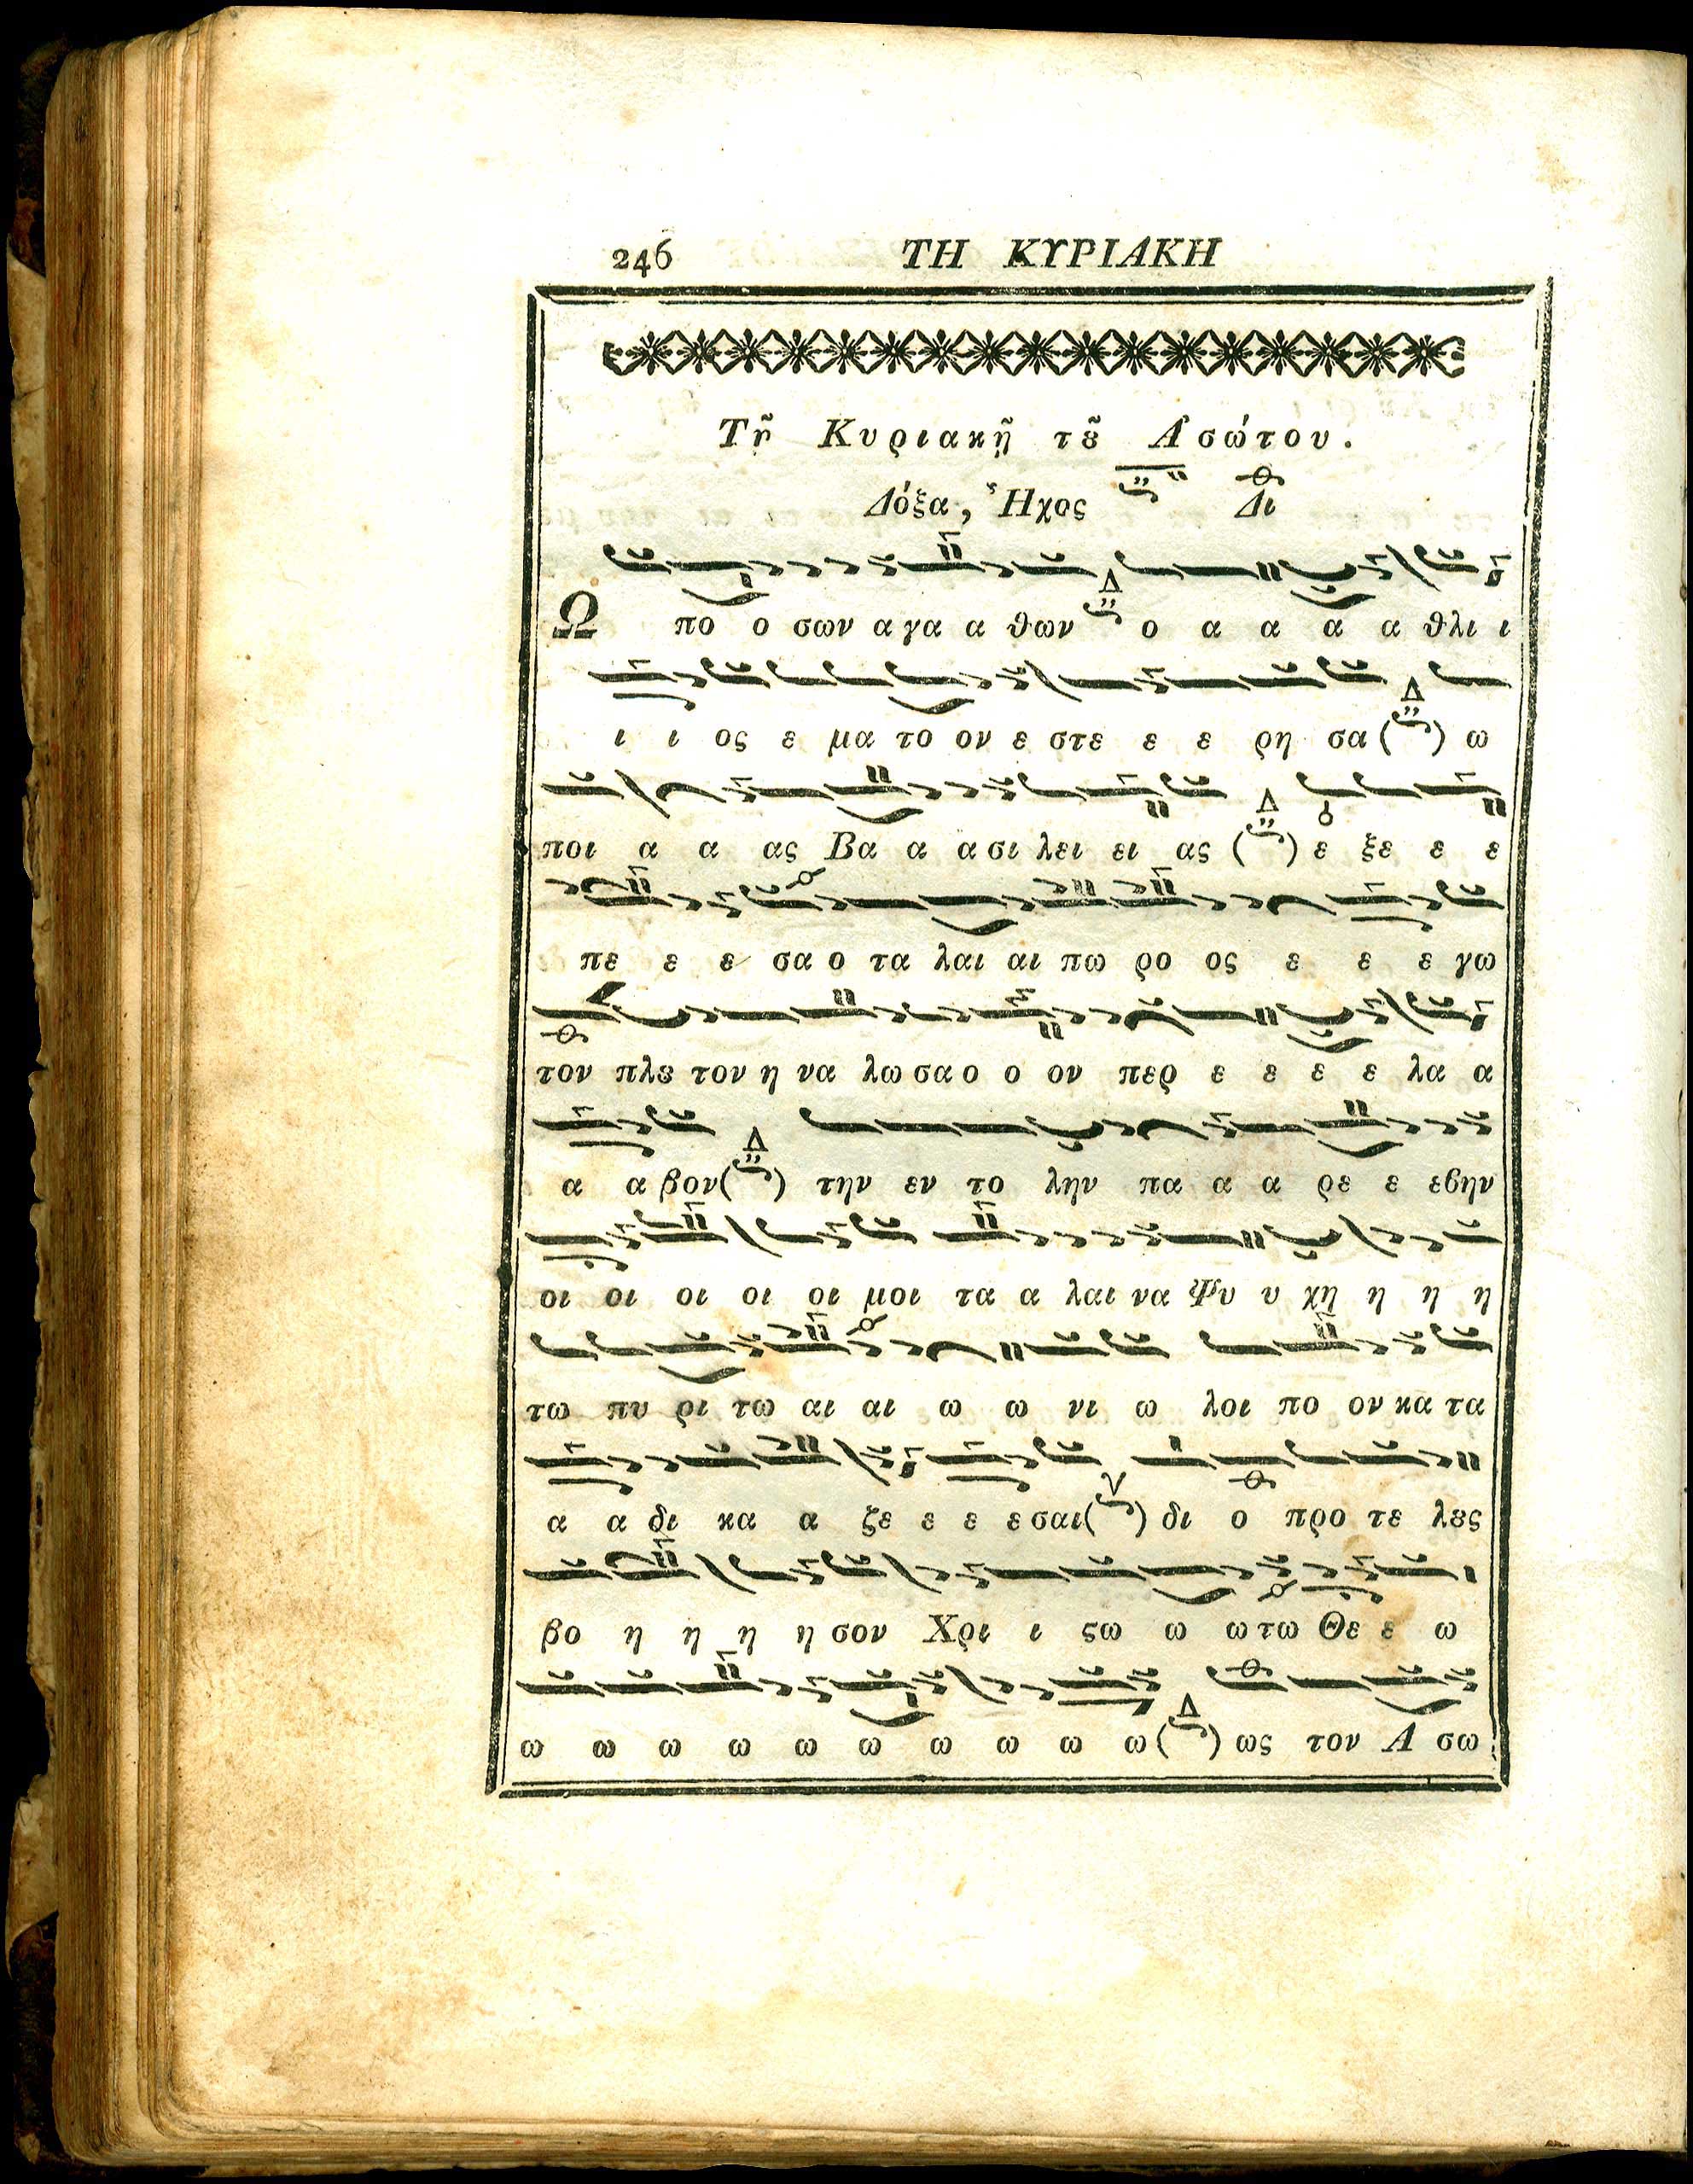 246 ΤΗ ΚΥΡΙΑΚΗ
Τῇ Κυριακῇ τȣ͂ Ἀσώτου.
Δόξα, Ἦχος Δι
Ω πο ο σων α γα α θων ο α α α α θλι ι
ι ι ος ε μα το ον ε στε ε ε ρη σα ( ) ω
ποι α α ας Βα α α σι λει ει ας ( ) ε ξε ε ε
πε ε ε σα ο τα λαι αι πω ρο ος ε ε ε γω
τον πλȣ τον η να λω σα ο ο ον περ ε ε ε ε λα α
α α βον ( ) την εν το λην πα α α ρε ε εβην
οι οι οι οι οι μοι τα α λαι να Ψυ υ χη η η η
τω πυ ρι τω αι αι ω ω νι ω λοι πο ον κα τα
α α δι κα α ζε ε ε ε σαι ( ) δι ο προ τε λȣς
βο η η η η σον Χρι ι ϛω ω ω τω Θε ε ω
ω ω ω ω ω ω ω ω ω ω ( ) ως τον Α σω